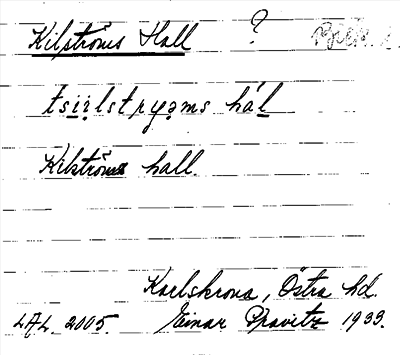 Kilströms Hall ?
tsiilstryəms hál
Kilströms hall.
Karlskrona, Östra hd.
LAL. 2005. Einar Pravitz 1933.